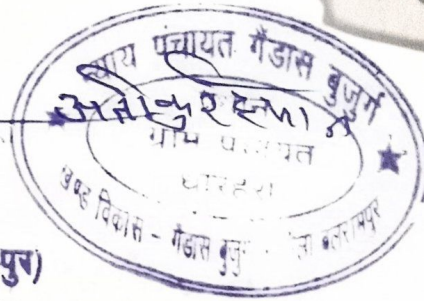 न्याय पंचायत गैंडास बुजुर्ग
ग्राम पंचायत
खण्ड विकास - गैंडास बुजु ला बलरामपुर
पुर)